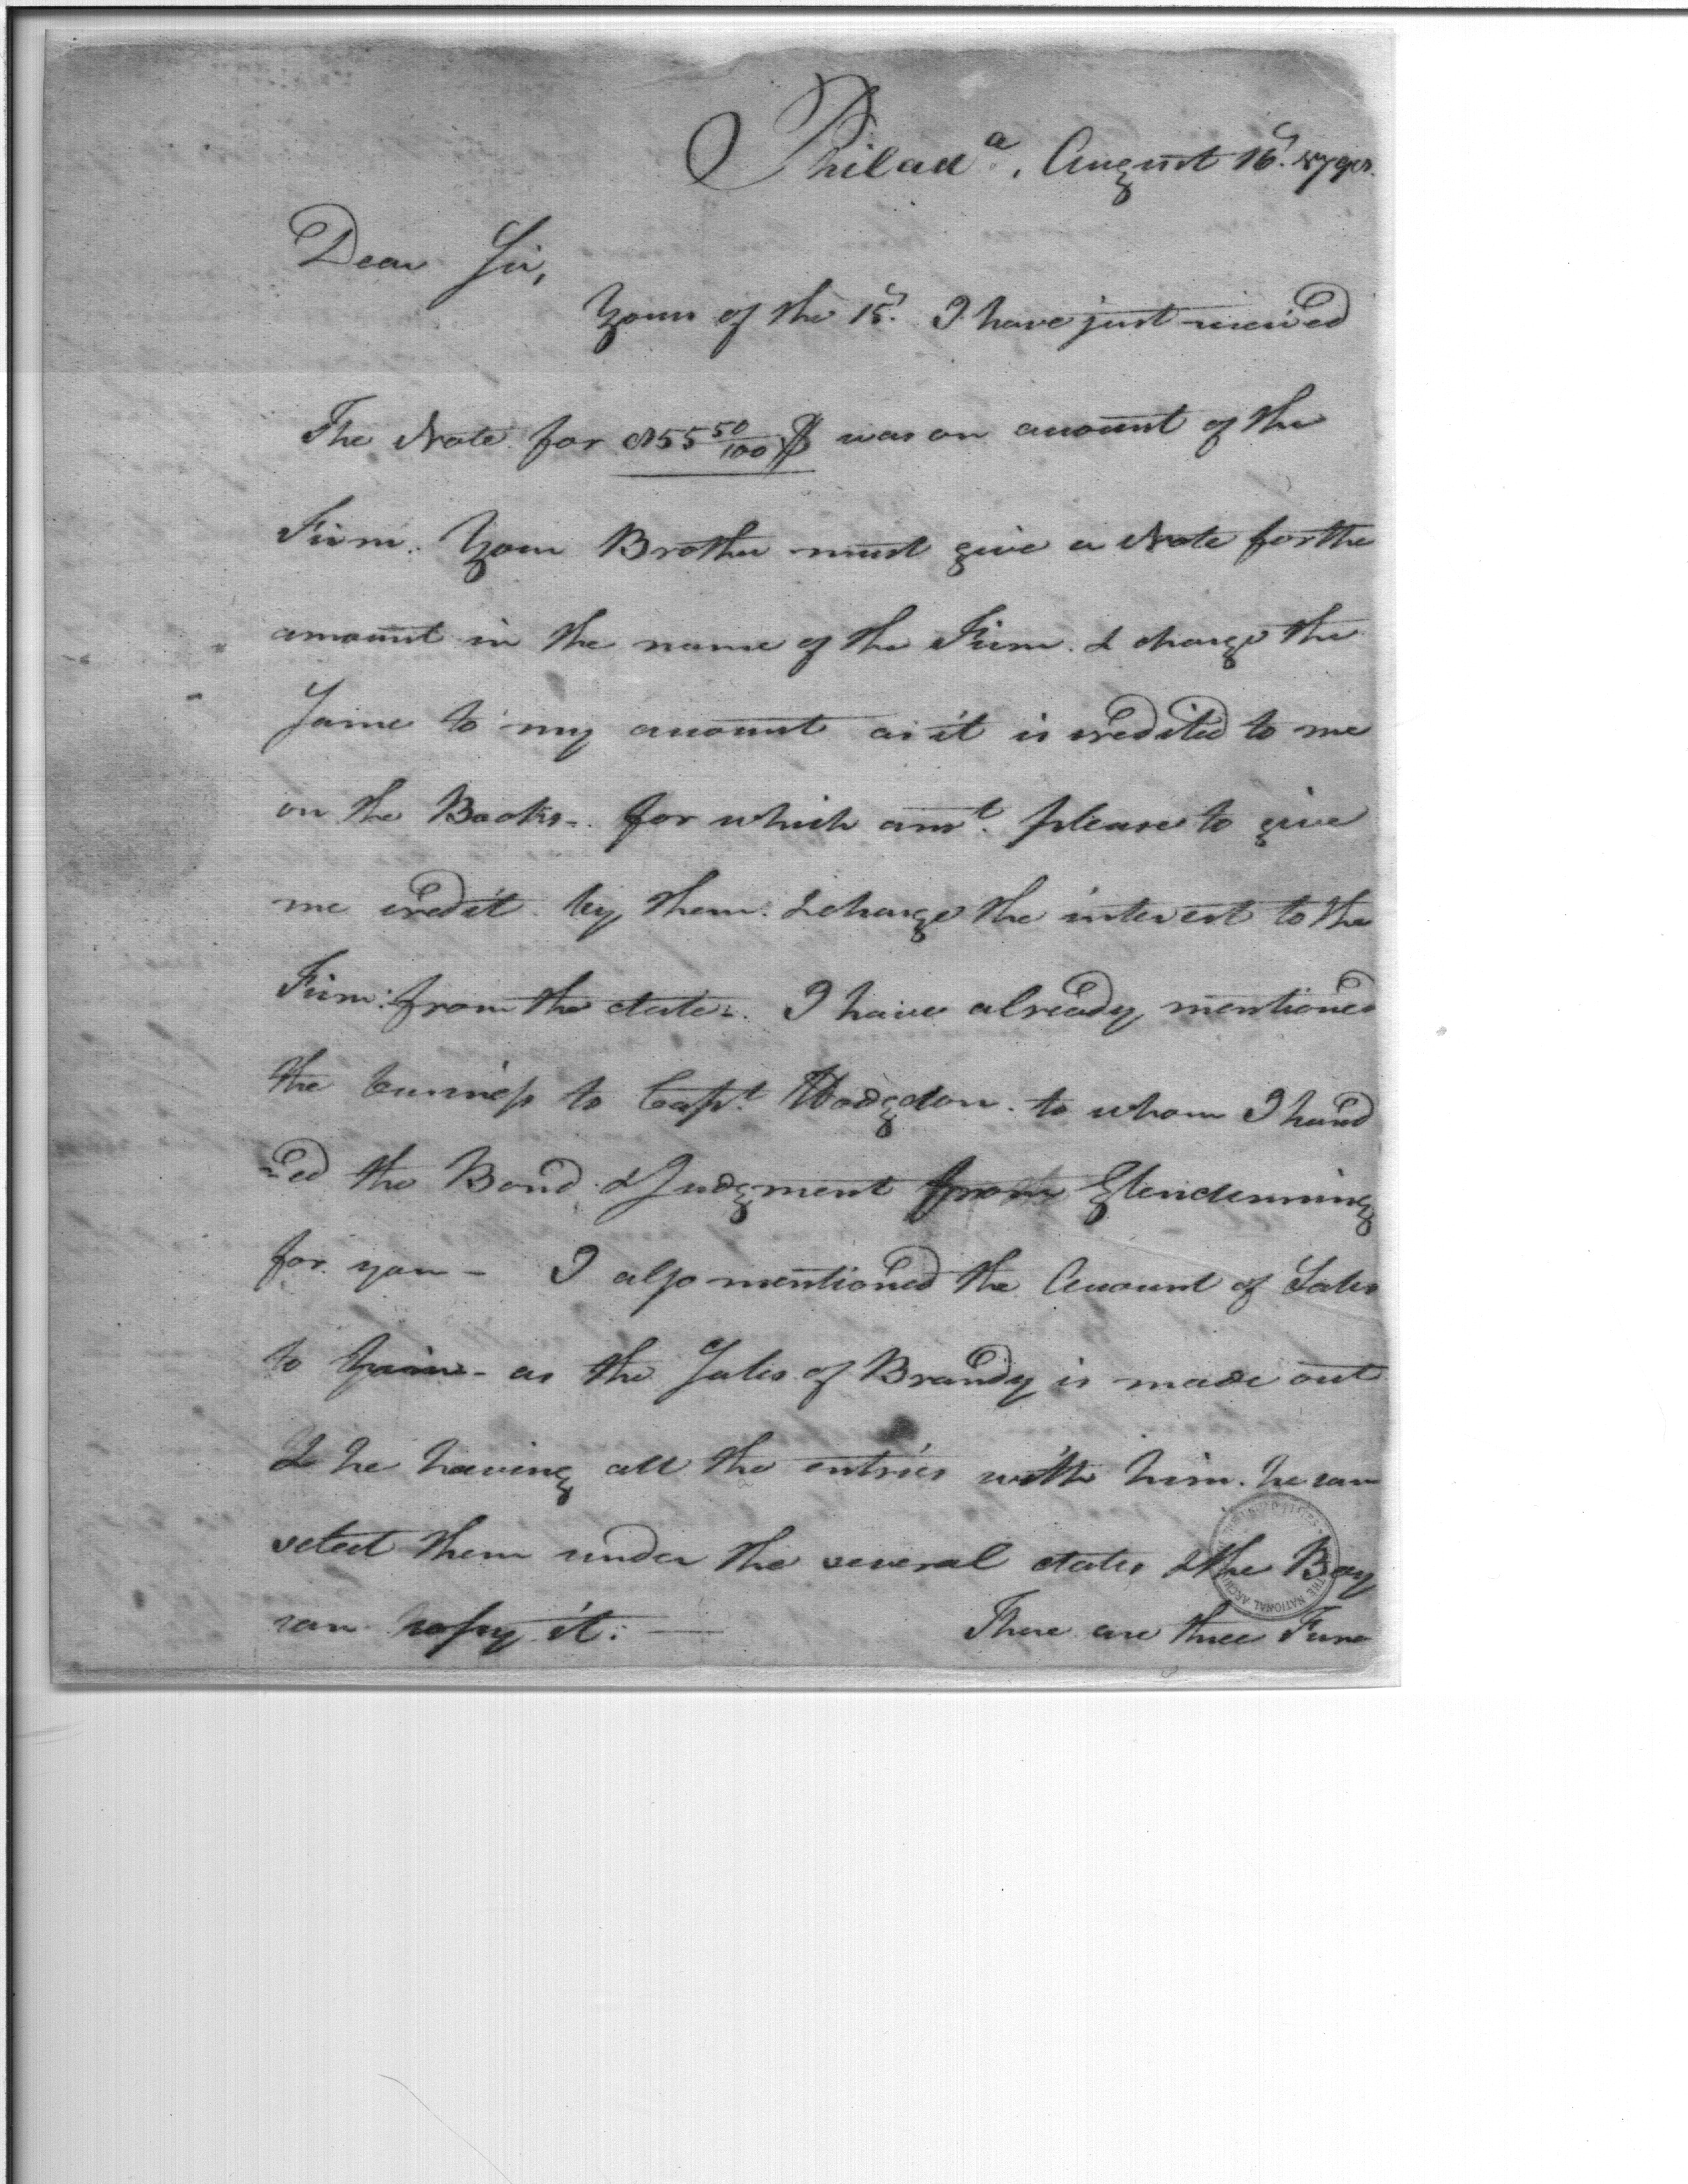 Philad<sup>a</sup>. August 16.
Dear Sir,
Yours of the 15. I have just received
The Note for 55 50/100 $ was on account of the
Firm. Your Brother must give a Note for the
amount in the name of the Firm. & charge the
Same to my account as it is credited to me
on the Books. for which amt. please to give
me credit by them. & charge the interest to the
Firm. from the date. I have already mentioned
the business to Capt. Hodgdon. to whom I hand
-ed the Bond & Judgment from Glendenning
for you - I also mentioned the Account of Sales
to him - as the Sales of Brandy is made out
& he having all the entries with him. he can
select them under the several dates & the Boy
can copy it. —
There are three
THE NATIONAL ARCHIVES